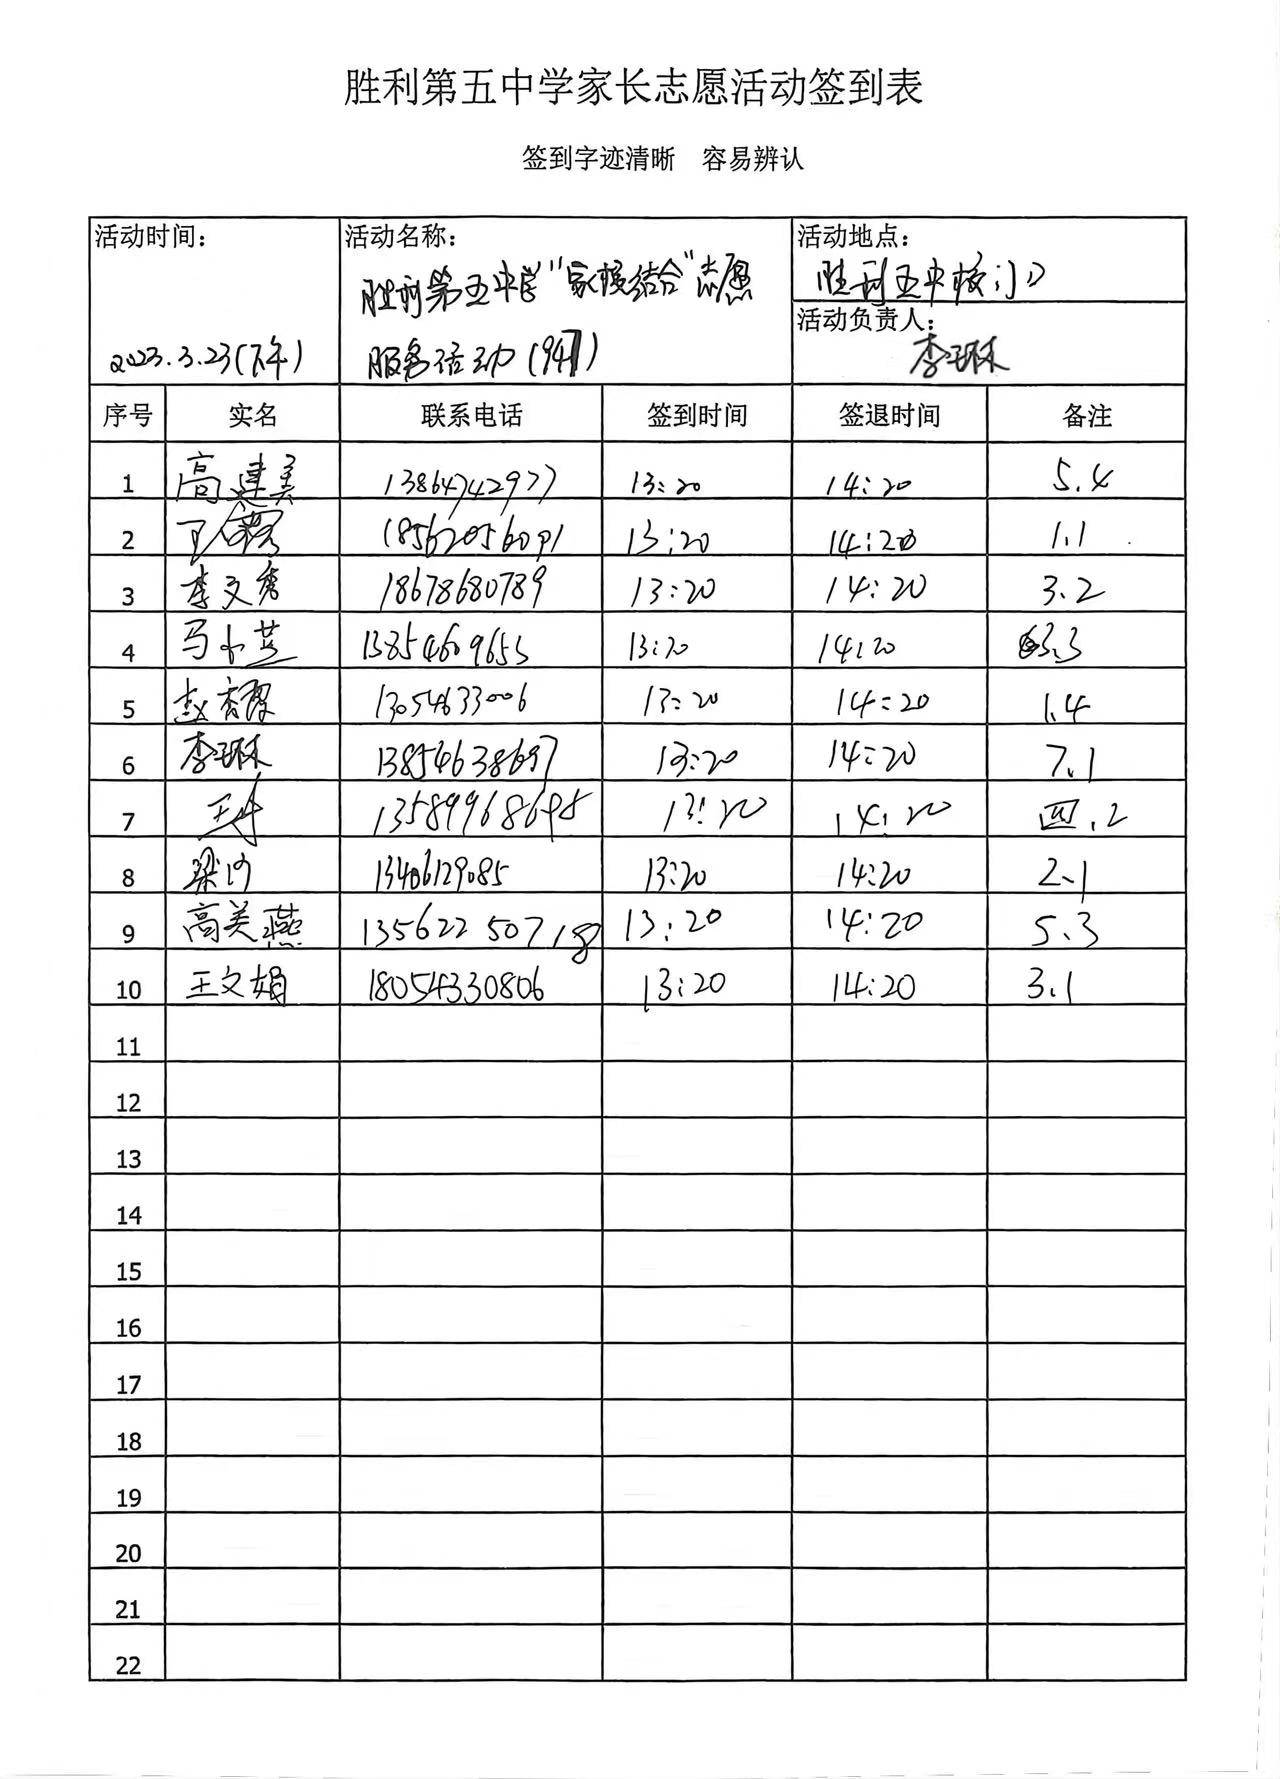 胜利第五中学家长志愿活动签到表
签到字迹清晰 容易辨认
活动时间: 活动名称: 活动地点:
胜利第五中学“家校结合”志愿 胜利五中校门口
活动负责人:
2023.3.23(下午) 服务活动(947) 李琳
序号 实名 联系电话 签到时间 签退时间 备注
1 高建美 13864742977 13:20 14:20 5.4
2 18562056091 13:20 14:20 1.1
3 李文秀 18678680789 13:20 14:20 3.2
4 马小芝 13854609653 13:20 14:20 3.3
5 赵 13054633006 13:20 14:20 1.4
6 李琳 13854638697 13:20 14:20 7.1
7 13589968698 13:20 14:20 四.2
8 梁 13406129085 13:20 14:20 2.1
9 高美燕 13562250718 13:20 14:20 5.3
10 王文娟 18054330806 13:20 14:20 3.1
11
12
13
14
15
16
17
18
19
20
21
22